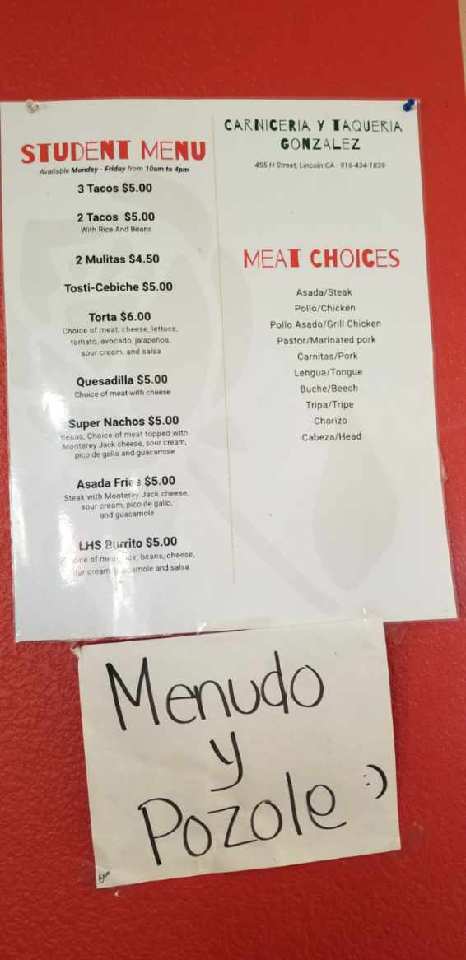 STUDENT MENU
Available Monday - Friday from 10am to 4pm
3 Tacos $5.00
2 Tacos $5.00
With Rice And Beans
2 Mulitas $4.50
Tosti-Cebiche $5.00
Torta $6.00
Choice of meat, cheese, lettuce,
tomato, avocado, jalapeños,
sour cream, and salsa
Quesadilla $5.00
Choice of meat with cheese
Super Nachos $5.00
Beans, Choice of meat topped with
Monterey Jack cheese, sour cream,
pico de gallo and guacamole
Asada Fries $5.00
Steak with Monterey Jack cheese,
sour cream, pico de gallo,
and guacamole
LHS Burrito $5.00
Choice of meat, rice, beans, cheese,
sour cream, guacamole and salsa
CARNICERIA Y TAQUERIA
GONZALEZ
Street, Lincoln CA
MEAT CHOICES
Asada/Steak
Pollo/Chicken
Pollo Asado/Grill Chicken
Pastor/Marinated pork
Carnitas/Pork
Lengua/Tongue
Buche/Beech
Tripa/Tripe
Chorizo
Cabeza/Head
Menudo
y
Pozole :)